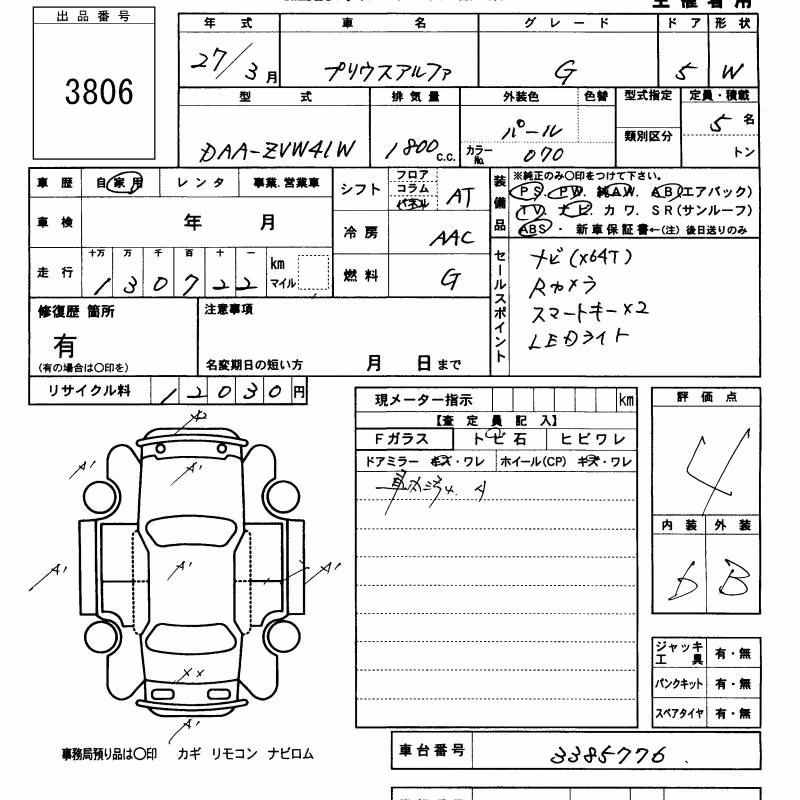 主催者用
出品番号
3806
年式 車名 グレード ドア 形状
27/3月 プリウスアルファ G 5 W
型式 排気量 外装色 色替 型式指定 定員・積載
DAA-ZVW41W 1800 c.c. パール カラーNo. 070 類別区分 5名 トン
車歴 自家用 レンタ 事業.営業車
車検 年 月
走行 十万 万 千 百 十 一 km マイル
130722
シフト フロア コラム パネル AT
冷房 AAC
燃料 G
装備品 ※純正のみ○印をつけて下さい。
PS. PW. 純AW. AB(エアバック)
TV. ナビ. カワ. SR(サンルーフ)
ABS・ 新車保証書←(注)後日送りのみ
セールスポイント
ナビ(X64T)
Rカメラ
スマートキーx2
LEDライト
修復歴 箇所
有
(有の場合は○印を)
注意事項
名変期日の短い方 月 日まで
リサイクル料 12030円
現メーター指示 km
【査定員記入】
Fガラス トビ石 ヒビワレ
ドアミラー キズ・ワレ ホイール(CP) キズ・ワレ
A
評価点
4
内装 外装
b B
A2
A' A'
A' A' A'
XX
A'
ジャッキ 工具 有・無
パンクキット 有・無
スペアタイヤ 有・無
事務局預り品は○印 カギ リモコン ナビロム
車台番号 3385776